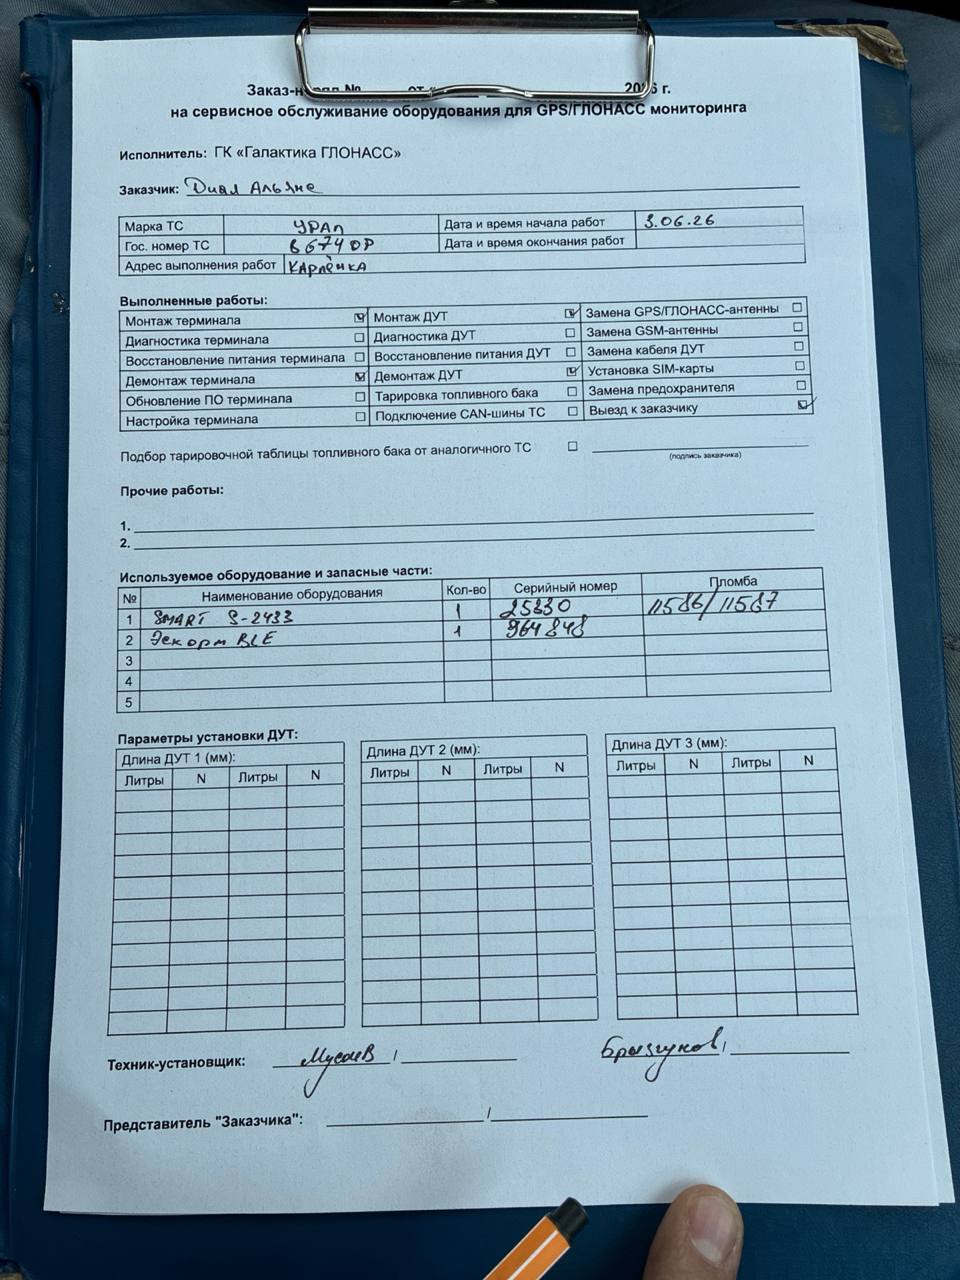 Заказ-наряд № от « 2026 г.
на сервисное обслуживание оборудования для GPS/ГЛОНАСС мониторинга
Исполнитель: ГК «Галактика ГЛОНАСС»
Заказчик: Диал Альянс
Марка ТС УРАЛ Дата и время начала работ 3.06.26
Гос. номер ТС В674ОР Дата и время окончания работ
Адрес выполнения работ Карлёнка
Выполненные работы:
Монтаж терминала Монтаж ДУТ Замена GPS/ГЛОНАСС-антенны
Диагностика терминала Диагностика ДУТ Замена GSM-антенны
Восстановление питания терминала Восстановление питания ДУТ Замена кабеля ДУТ
Демонтаж терминала Демонтаж ДУТ Установка SIM-карты
Обновление ПО терминала Тарировка топливного бака Замена предохранителя
Настройка терминала Подключение CAN-шины ТС Выезд к заказчику
Подбор тарировочной таблицы топливного бака от аналогичного ТС
(подпись заказчика)
Прочие работы:
1.
2.
Используемое оборудование и запасные части:
№ Наименование оборудования Кол-во Серийный номер Пломба
1 SMART S-2433 1 25330 11586/11587
2 Эскорт BLE 1 964848
3
4
5
Параметры установки ДУТ:
Длина ДУТ 1 (мм): Длина ДУТ 2 (мм): Длина ДУТ 3 (мм):
Литры N Литры N Литры N Литры N Литры N Литры N
Техник-установщик: Мусаев / Брызгунов /
Представитель "Заказчика": /